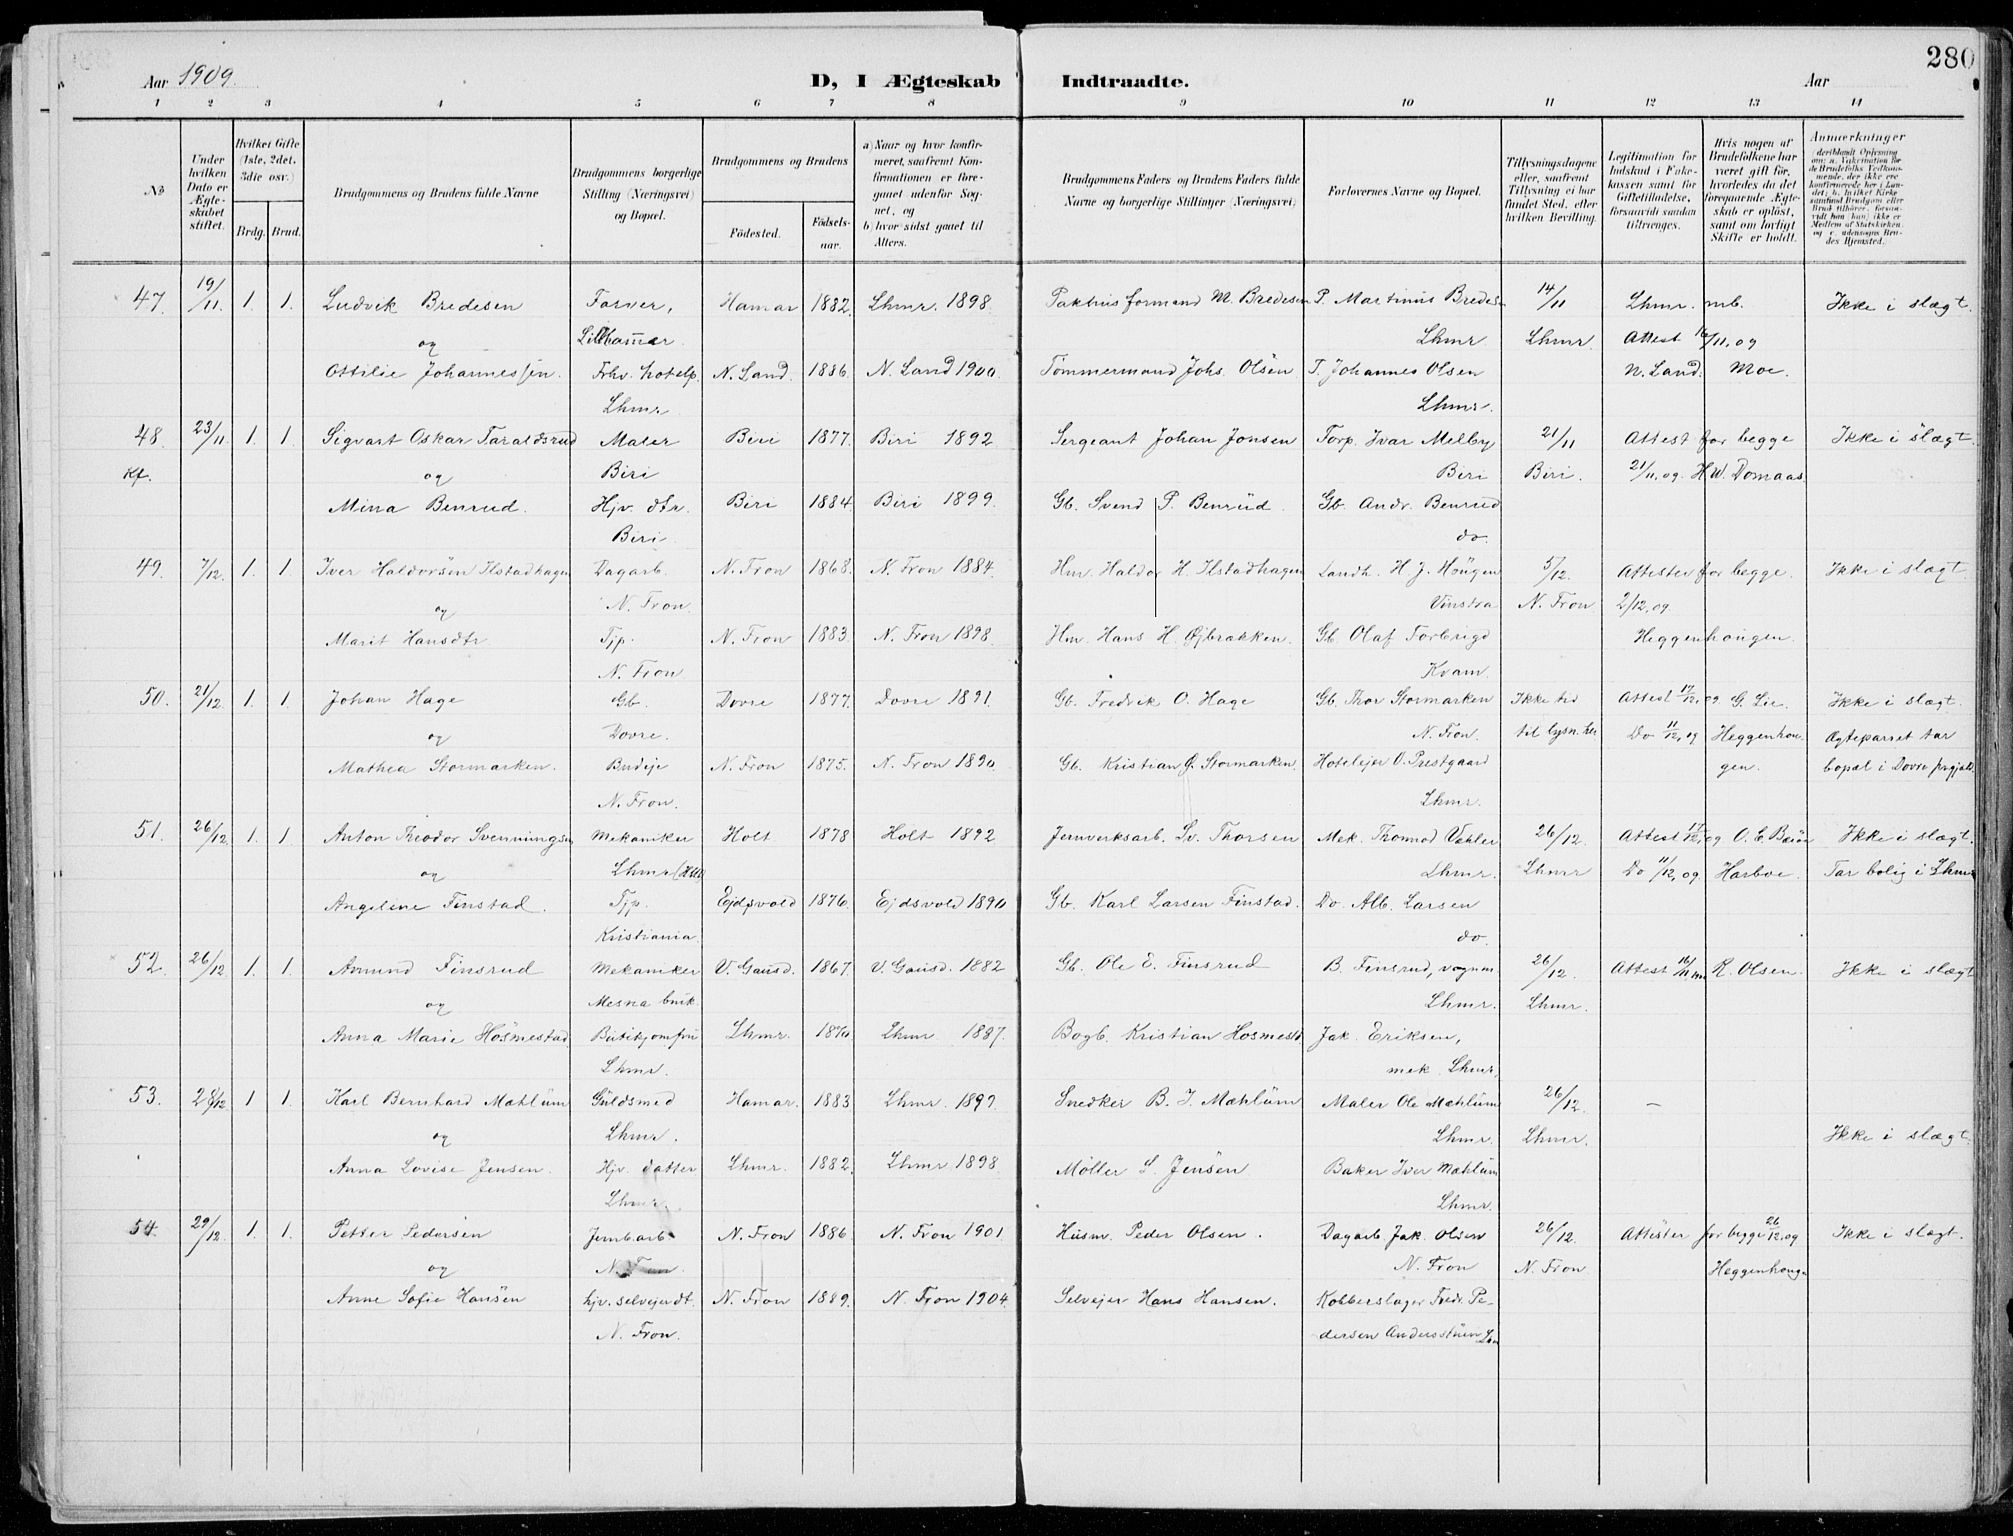 280
Aar 1909.
D, I Ægteskab Indtraadte.
Aar
1 2 3 4 5 6 7 8 9 10 11 12 13 14
No
Under hvilken Dato er Ægteskabet stiftet.
Hvilket Gifte (1ste, 2det, 3die osv.)
Brdg. Brud.
Brudgommens og Brudens fulde Navne
Brudgommens borgerlige Stilling (Næringsvei) og Bopæl.
Brudgommens og Brudens
Födested. Födselsaar.
a) Naar og hvor konfirmeret, saafremt Konfirmationen er foregaaet udenfor Sognet, og
b) hvor sidst gaaet til Alters.
Brudgommens Faders og Brudens Faders fulde Navne og borgerlige Stillinger (Næringsvei)
Forlovernes Navne og Bopæl.
Tillysningsdagene eller, saafremt Tillysning ei har fundet Sted, efter hvilken Bevilling.
Legitimation for Indskud i Enkekassen samt for Giftetilladelse, forsaavidt saadan tiltrænges.
Hvis nogen af Brudefolkene har været gift før, hvorledes da det foregaaende Ægteskab er opløst, samt om lovligt Skifte er holdt.
Anmærkninger
47. 19/11. 1. 1. Ludvik Bredesen Farver, Hamar 1882. Lhmr. 1898. Pakhusformand M. Bredesen P. Martinus Bredesen 14/11 Lhmr. mb. Ikke i slægt.
og Lillehammer. Lhmr. Lhmr. Attest 16/11, 09
Ottilie Johannessen. Frhv. hotelp. N. Land. 1886. N. Land 1900. Tømmermand Johs. Olsen T. Johannes Olsen N. Land. Moe.
Lhmr. Lhmr.
48. 23/11. 1. 1. Sigvart Oskar Taraldsrud Maler Biri 1877. Biri 1892 Sergeant Johan Jonsen Forp. Ivar Melby 21/11 Attest for begge Ikke i slægt.
Kf. og Biri Biri Biri. 21/11, 09. H.W. Domaas.
Mina Benrud. Hjv. dtr. Biri 1884. Biri 1899. Gb. Svend P. Benrud. Gb. Andr. Benrud
Biri. do.
49. 7/12. 1. 1. Iver Haldorsen Ilstadhagen Dagarb. N. Fron 1868. N. Fron 1884. Hm. Haldor H. Ilstadhagen Landh. H. J. Hougen 5/12. Attester for begge. Ikke i slægt
og N. Fron. Vinstra N. Fron 2/12, 09.
Marit Hansdtr Tjp. N. Fron 1883. N. Fron 1898. Hm. Hans H. Øjbrækken. Gb. Olaf Forbrigd Heggenhougen.
N. Fron Kvam.
50. 21/12. 1. 1. Johan Hage Gb. Dovre 1877. Dovre 1891. Gb. Fredrik O. Hage Gb. Thor Stormarken Ikke tid Attest 17/12, 09 G. Lie. Ikke i slægt.
og Dovre. N. Fron. til lysn. her Do 11/12, 09 Heggenhou- Ægteparret tar
Mathea Stormarken. Budeje N. Fron 1875. N. Fron 1890. Gb. Kristian G. Stormarken. Hotelejer O. Prestgaard gen. bopæl i Dovre prgjeld.
N. Fron. Lhmr.
51. 26/12. 1. 1 Anton Theodor Svenningsen Mekaniker Holt 1878 Holt 1892 Jernverksarb. Sv. Thorsen Mek. Thomod Vehler 26/12. Attest 17/12, 09 O. E. Ikke i slægt.
og Lhmr Lhmr. Lhmr Do 11/12, 09 Harboe. Tar bolig i Lhmr
Angeline Finstad. Tjp. Ejdsvold 1876. Ejdsvold 1890 Gb. Karl Larsen Finstad. Do. Alb. Larsen
Kristiania. do.
52. 26/12 1. 1. Amund Finsrud Mekaniker V. Gausd. 1867. V. Gausd. 1882 Gb. Ole E. Finsrud B. Finsrud, vognm. 26/12. Attest 16/11 R. Olsen. Ikke i slægt
og Mesna bruk. Lhmr. Lhmr.
Anna Marie Hosmestad Butikjomfru Lhmr. 1870. Lhmr 1887. Bogb. Kristian Hosmestd. Jak. Eriksen,
Lhmr. mek. Lhmr.
53. 28/12 1 1. Karl Bernhard Mæhlum Guldsmed Hamar. 1883. Lhmr. 1897. Snedker B. J. Mæhlum Maler Ole Mæhlum 26/12. —
og Lhmr. Lhmr. Lhmr. Ikke i slægt.
Anna Lovise Jensen. Hjv. datter Lhmr. 1882. Lhmr 1898. Møller S. Jensen Baker Iver Mæhlum
Lhmr. Lhmr.
54. 29/12. 1. 1. Petter Pedersen Jernb.arb. N. Fron 1886. N. Fron 1901. Husm. Peder Olsen. Dagarb. Jak. Olsen 26/12. Attester for begge 26/12, 09 Ikke i slægt.
og N. Fron. N. Fron N. Fron. Heggenhouge
Anne Sofie Hansen hjv. selvejerdt. N. Fron 1889. N. Fron 1904. Selvejer Hans Hansen. Kobberslager Fredr. Pe-
N. Fron. dersen Andersstuen